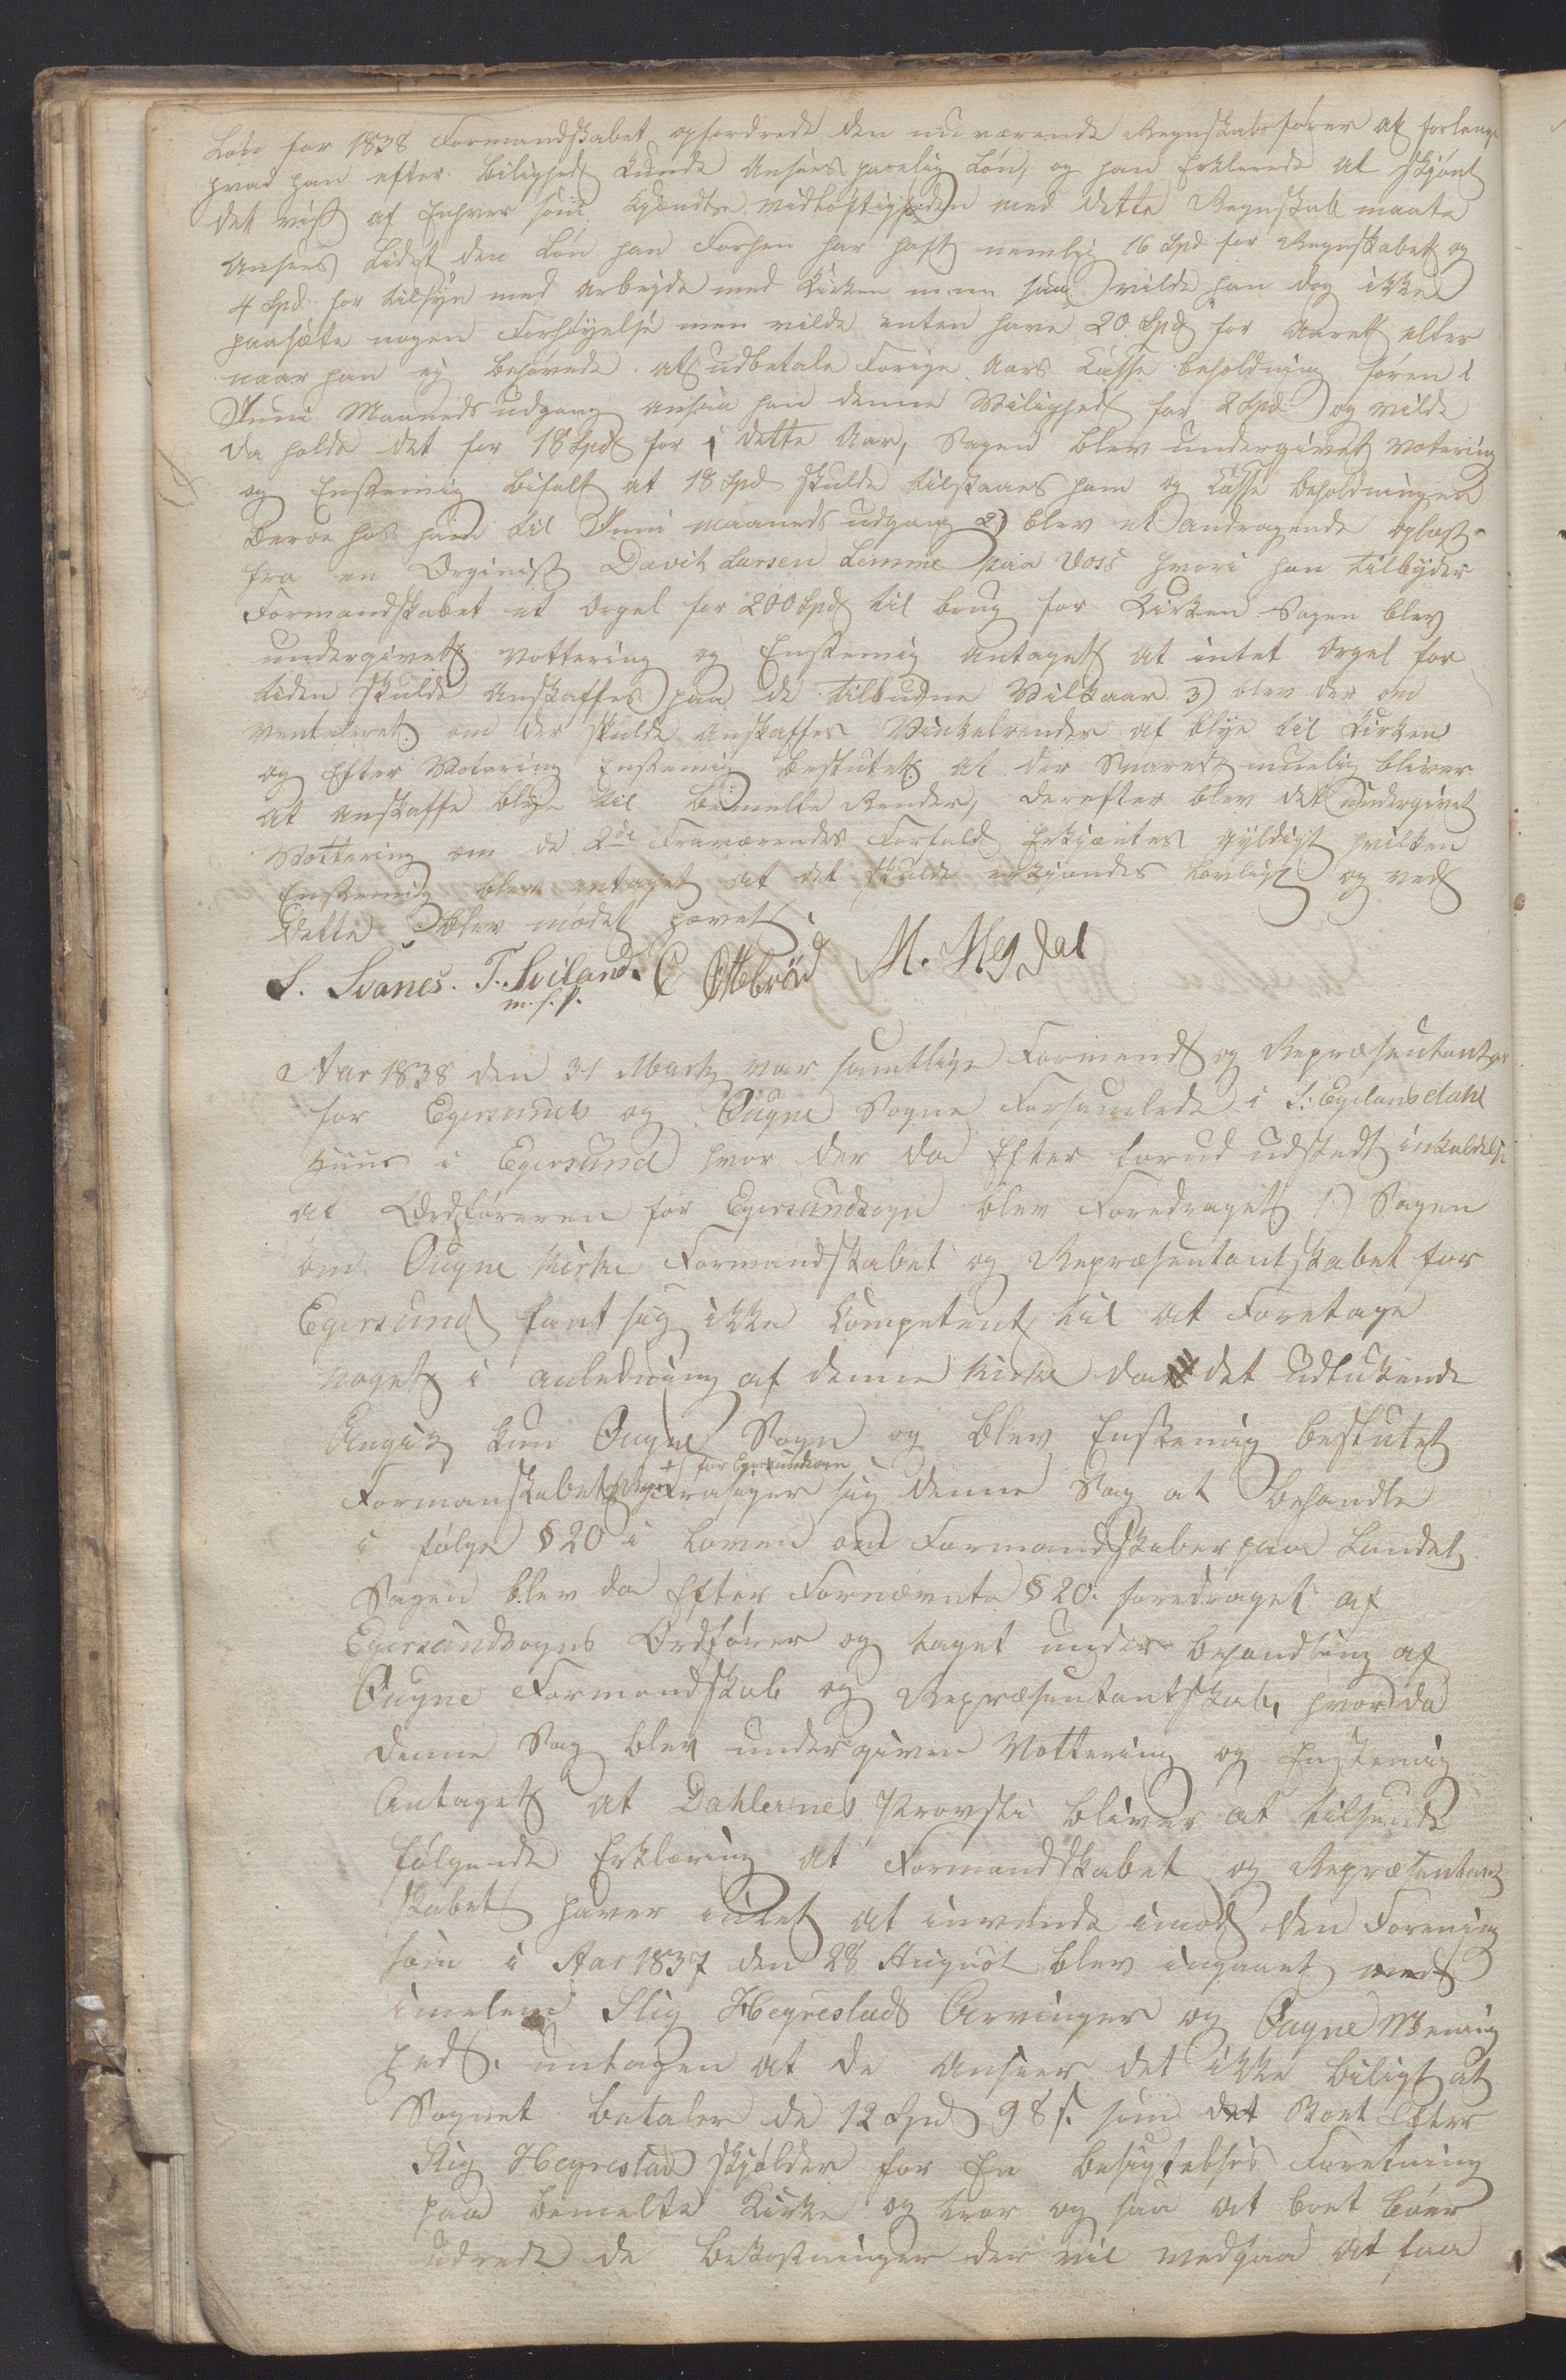 Løn for 1838 Formandskabet opfordrede den nuværende Regnskabsfører at forlange
hvad han efter bilighed kunde Ansees paselig Løn, og han Erklerede at skjønt
det vist af Enhver som Kjændte Vidtløftigheden med dette Regnskab maate
Ansees Lidet den Løn han Forhen har haft nemlig 16 Spd for Regnskabet og
4 Spd. for tilsyn med arbeyde med Kirken m.m saa vilde han dog ikke
paasæte nogen Forhøyelse men vilde enten have 20 Spd for Aaret eller
naar han ej behøvede at udbetale Forige Aars Casse beholdning føren i
Juni Maaneds udgang ansaa han denne Vilighed for 2 Spd og vilde
da holde det for 18 Spd for i dette Aar, Sagen blev undergivet Votering
og Enstemig bifalt at 18 Spd skulde tilstaaes ham og Casse beholdningen
beroe hos ham til Juni maaneds udgang 2) blev et andragende oplæst
fra en Orginist Davit Larsen Lemme paa Voss hvori han tilbyder
Formandskabet et Orgel for 200 Spd til brug for Kirken Sagen blev
undergivet Vottering og Enstemig antaget at intet Orgel for
tiden skulde Anskaffes paa de tilbudne Vilkaar 3) blev der om
Ventileret om der skulde Anskaffes Vinkelrender af blye til Kirken
og Efter Votering Enstemig beslutet at der Snarest muelig bliver
at anskaffe blye til bemelte Render, derefter blev det undergivet
Vottering om de 2de Fraværendes Forfald Erkjæntes gyldigt hvilken
Enstemig blev antaget at det skulde erkjændes lovligt og ved
dette blev mødet hævet
S. Svanes. T. Sviland. C Ottebrød M. Megdal
m. f. P.
Aar 1838 den 31 Marts var samtlige Formend og Repræsentanter
for Egersunds og Øugne Sogne Forsamlede i S: Egelandsdahl
huus i Egersund hvor der da Efter forud udstedt inkaldelse
af Ordføreren for Egersundsogn blev Foredraget 1) Sagen
om Øugne Kirke Formandskabet og Repræsentantskabet for
Egersund fant sig ikke Competent til at Foretage
noget i anledning af denne Kirke da det udlukende
Angik kun Øugne Sogn og blev Enstemig beslutet
+ for Egersundsogn
Formanskabet Frasiger sig denne Sag at behandle
i følge § 20 i loven om Formandskaber paa Landet
Sagen blev da Efter Fornævnte § 20. foredraget af
Egersundsogns Ordfører og taget under behandling af
Øugne Formandskab og Repræsentantskab, hvor da
denne Sag blev undergiven Vottering og Enstemig
Antaget at Dahlernes Provsti bliver at tilsende
følgende Erklæring at Formandskabet og Repræsentant
skabet haver intet at invende imod den Forening
som i Aar 1837 den 28 August blev ingaaet med
imelem Stig Hegrestads Arvinger og Øugne Menig
hed. untagen at de Anseer det ikke biligt at
Sognet betaler de 12 Spd 98 s. som det Boet Efter
Stig Hegrestad skjølder for En besigtelses Foretning
paa bemelte Kirke og tror og saa at boet bøer
udrede de bekostninger der vil medgaa at faa